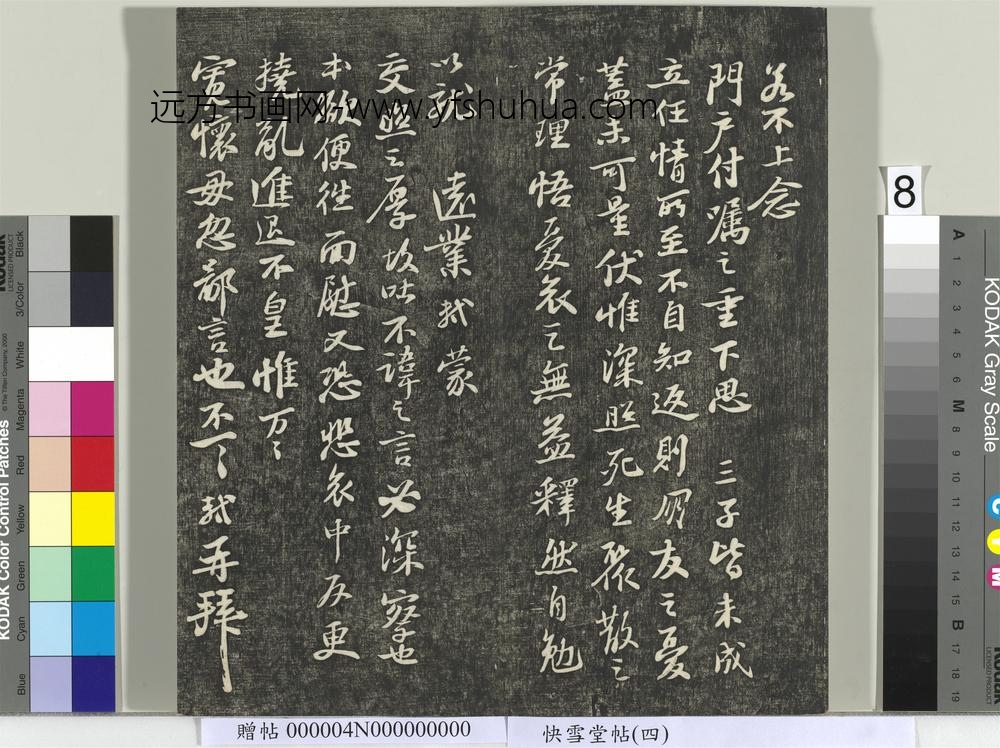 若不上念
門戶付囑之重下思 三子皆未成
立任情所至不自知返則朋友之憂
蓋未可量伏惟深照死生聚散之
常理悟憂哀之無益釋然自勉
以就 遠業軾蒙
交照之厚故吐不諱之言必深察也
本欲便往面慰又恐悲哀中反更
撓亂進退不皇惟万〻
寬懷毋忽鄙言也不一〻軾再拜
远方书画网-www.yfshuhua.com
8
KODAK Color Control Patches
LICENSED PRODUCT
© The Tiffen Company, 2000
Black
3/Color
White
Magenta
Red
Yellow
Green
Cyan
Blue
KODAK Gray Scale
C
Y
M
A 1 2 3 4 5 6 M 8 9 10 11 12 13 14 15 B 17 18 19
Kodak
LICENSED PRODUCT
贈帖 000004N000000000
快雪堂帖(四)